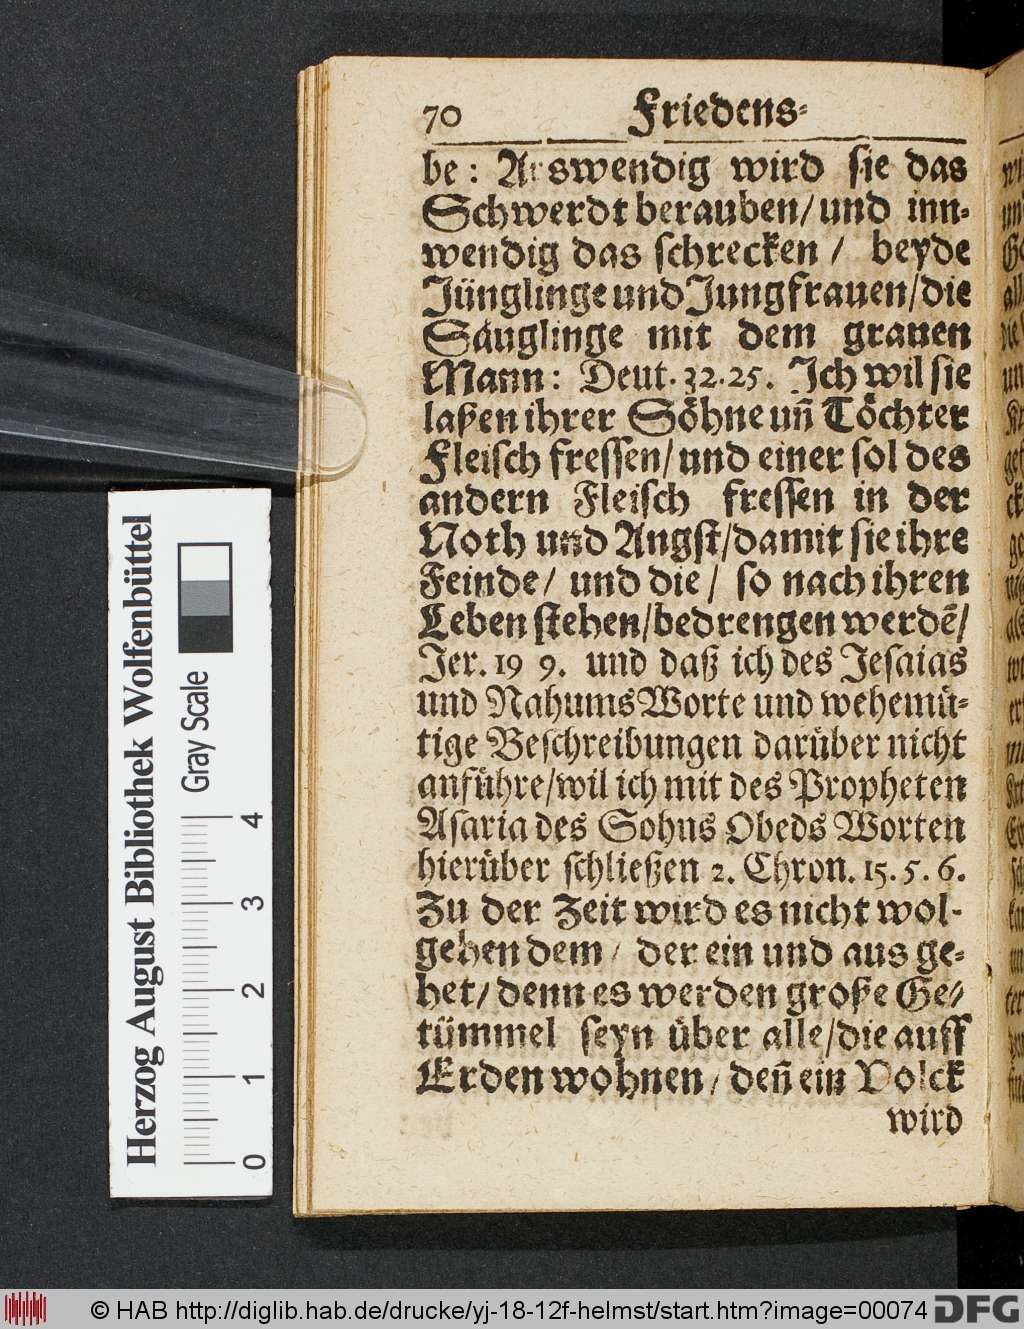 70 Friedens-
be: Auswendig wird sie das
Schwerdt berauben/und inn-
wendig das schrecken / beyde
Jünglinge und Jungfrauen/die
Säuglinge mit dem grauen
Mann: Deut. 32. 25. Ich wil sie
laßen ihrer Söhne uñ Töchter
Fleisch fressen/und einer sol des
andern Fleisch fressen in der
Noth und Angst/damit sie ihre
Feinde/ und die/ so nach ihren
Leben stehen/bedrengen werdẽ/
Jer. 19 9. und daß ich des Jesaias
und Nahums Worte und wehemü-
tige Beschreibungen darüber nicht
anführe/wil ich mit des Propheten
Asaria des Sohns Obeds Worten
hierüber schließen 2. Chron. 15. 5. 6.
Zu der Zeit wird es nicht wol-
gehen dem/ der ein und aus ge-
het/denn es werden große Ge-
tümmel seyn über alle/die auff
Erden wohnen/ deñ ein Volck
wird
Herzog August Bibliothek Wolfenbüttel
Gray Scale
0 1 2 3 4
© HAB http://diglib.hab.de/drucke/yj-18-12f-helmst/start.htm?image=00074
DFG